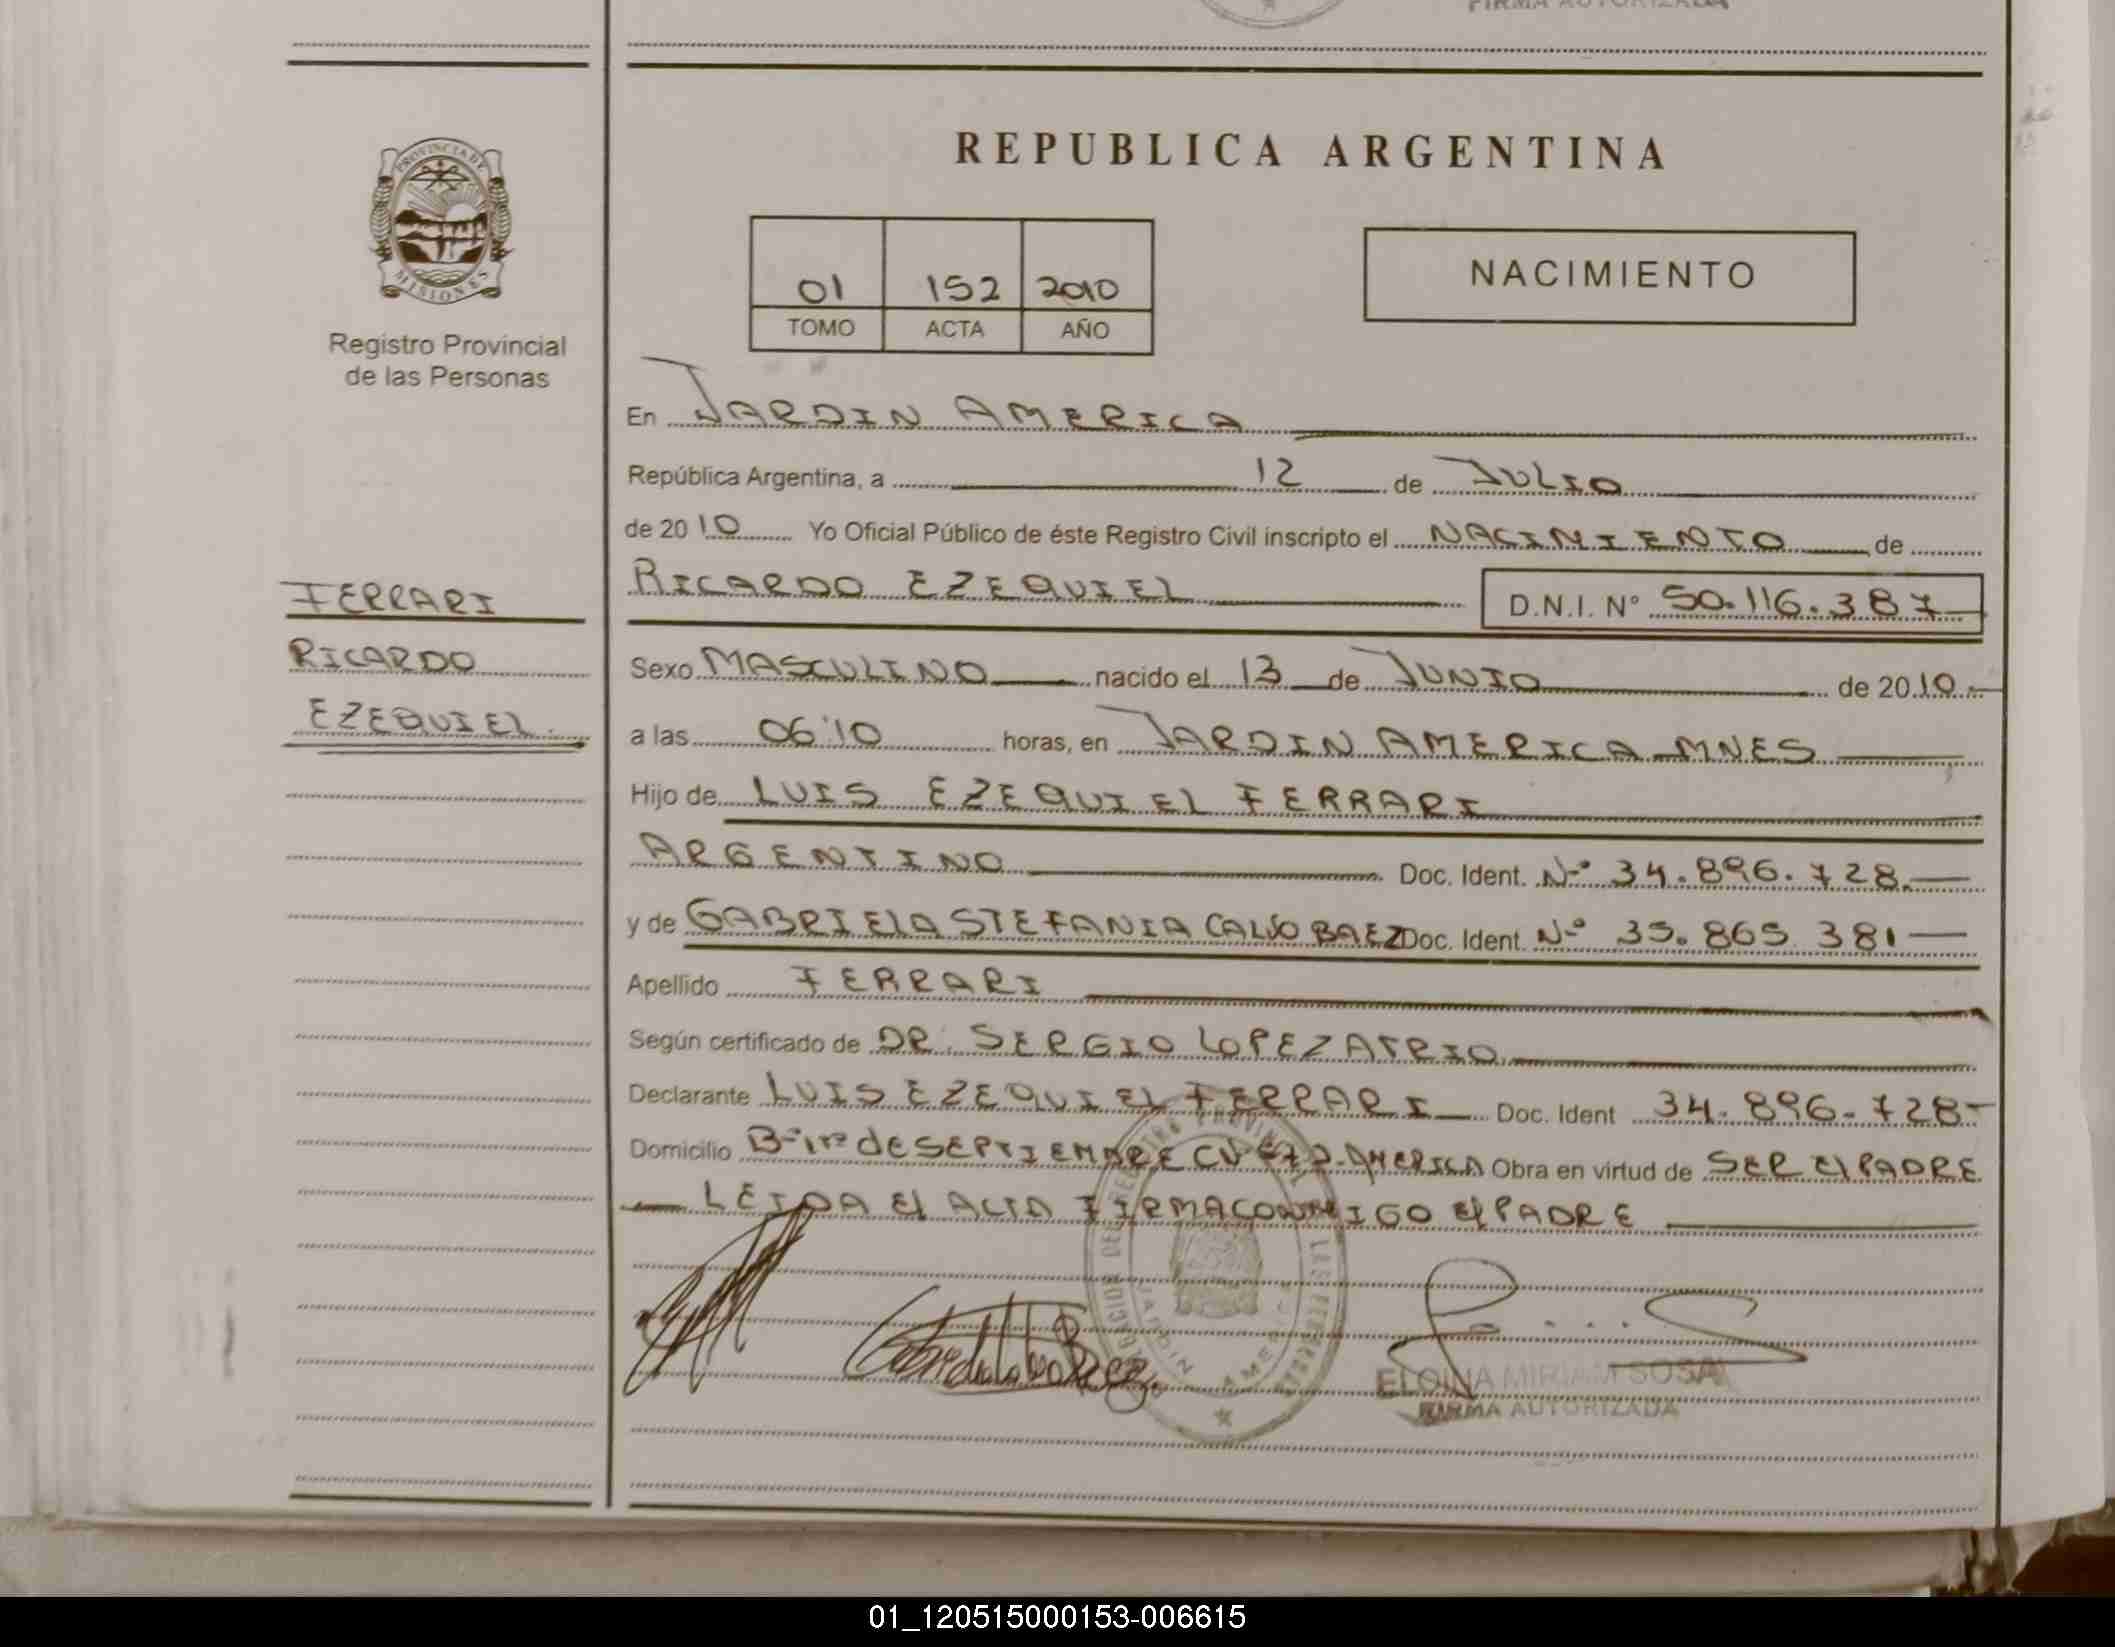 FIRMA AUTORIZADA
PROVINCIA DE
MISIONES
Registro Provincial
de las Personas
FERRARI
RICARDO
EZEQUIEL.
REPUBLICA ARGENTINA
01 152 2010
TOMO ACTA AÑO
NACIMIENTO
En JARDIN AMERICA
República Argentina, a 12 de JULIO
de 2010 Yo Oficial Público de éste Registro Civil inscripto el NACIMIENTO de
RICARDO EZEQUIEL D.N.I. N° 50.116.387
Sexo MASCULINO nacido el 13 de JUNIO de 2010.-
a las 06:10 horas, en JARDIN AMERICA-MNES
Hijo de LUIS EZEQUIEL FERRARI
ARGENTINO Doc. Ident. Nº 34.896.728.
y de GABRIELA STEFANIA CALVO BAEZ Doc. Ident. Nº 35.865.381
Apellido FERRARI
Según certificado de DR. SERGIO LOPEZ ATRIO
Declarante LUIS EZEQUIEL FERRARI Doc. Ident 34.896.728-
Domicilio de SEPTIEMBRE AMERICA Obra en virtud de SER El PADRE
LEIDA El ACTA FIRMA CONMIGO El PADRE
JARDIN AMERICA
ELOINA MIRIAM SOSA
FIRMA AUTORIZADA
01_120515000153-006615